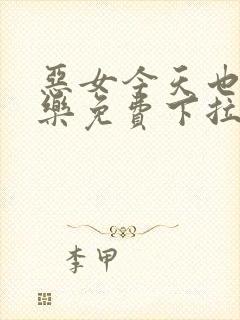 惡女今天也
樂免費下拉
李甲